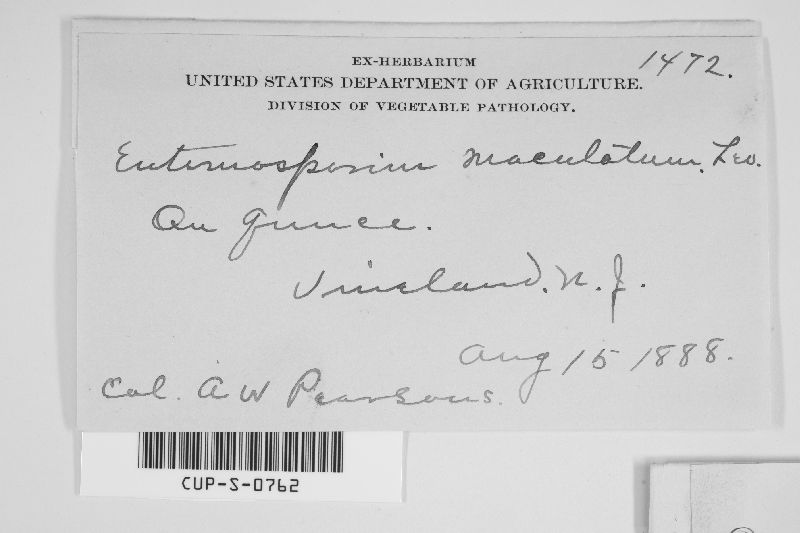 EX-HERBARIUM 1472.
UNITED STATES DEPARTMENT OF AGRICULTURE.
DIVISION OF VEGETABLE PATHOLOGY.
Entomosporium maculatum, Lev.
On Quince.
Vineland, N. J.
Aug 15 1888.
Col. A W Pearsons.
CUP-S-0762